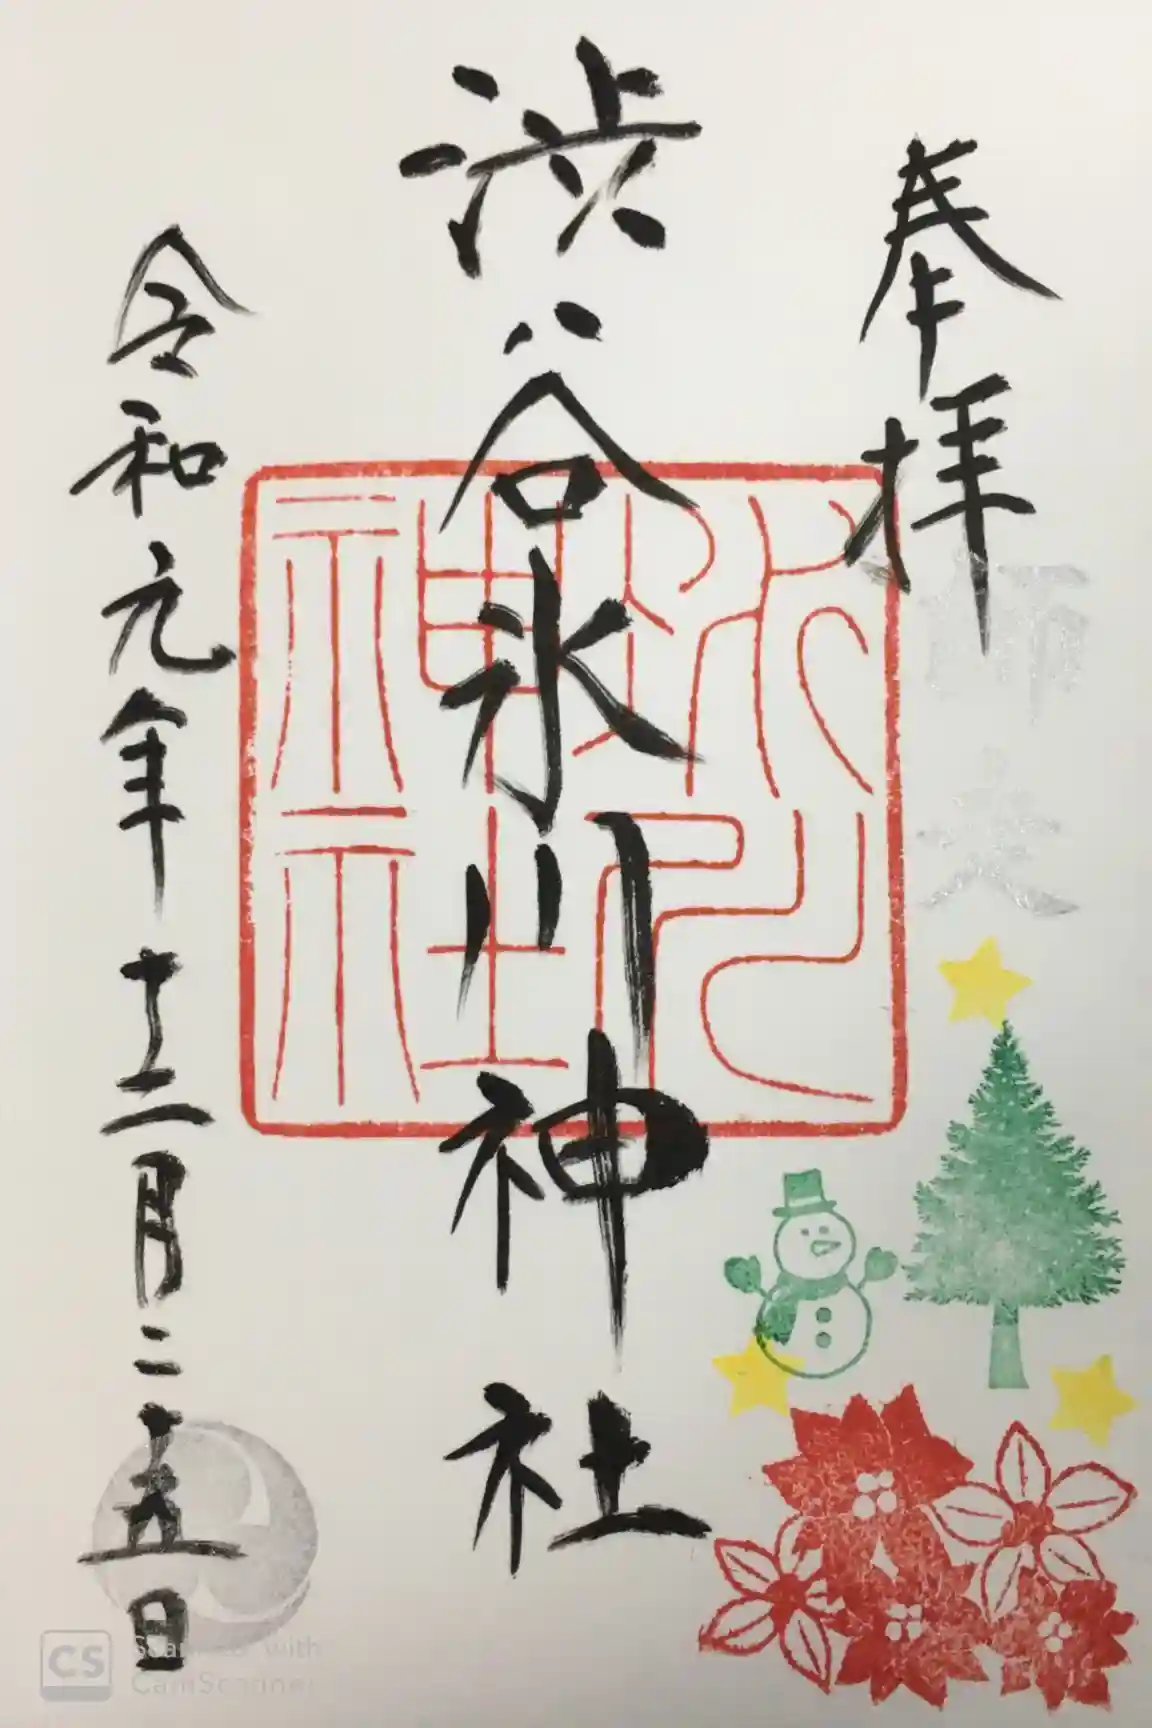 奉拝
師走
渋谷氷川神社
氷川神社
令和元年十二月二十五日
CS Scanned with
CamScanner